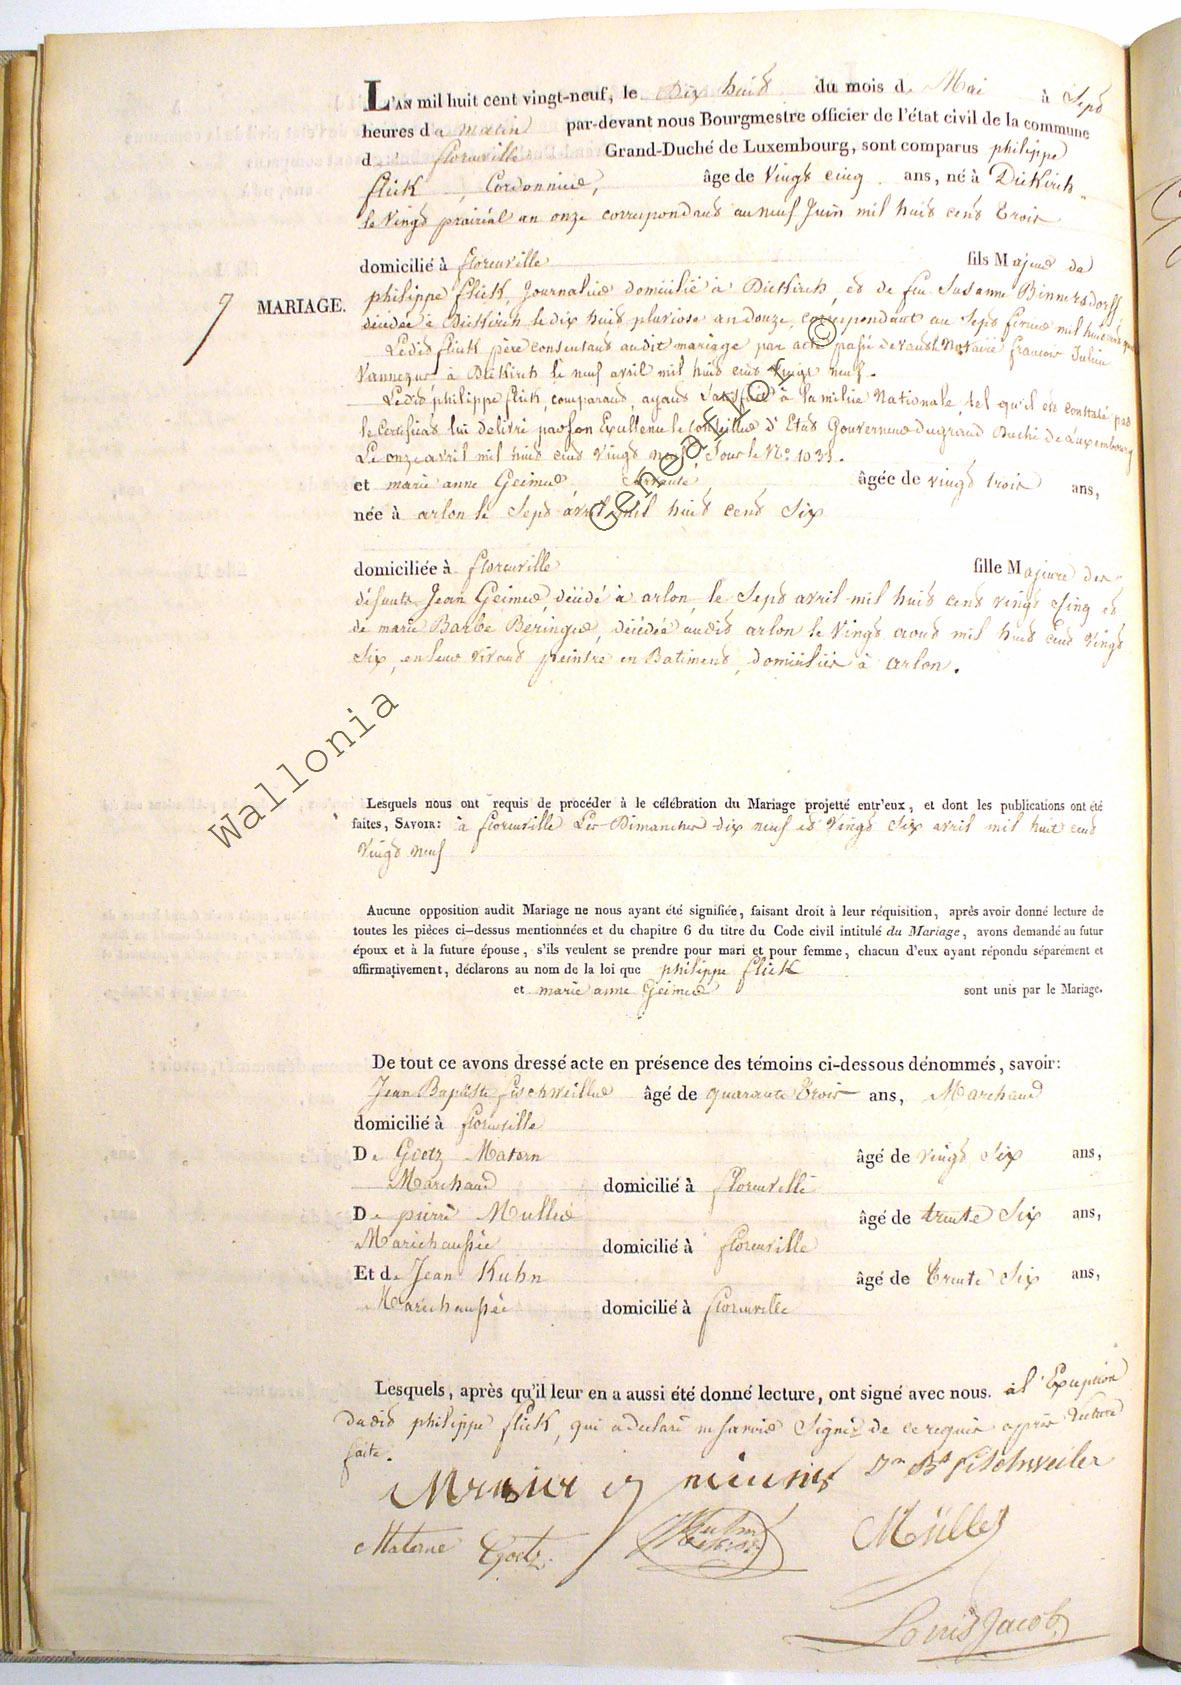 L'AN mil huit cent vingt-neuf, le Dix huit du mois de Mai à Sept
heures du matin par-devant nous Bourgmestre officier de l'état civil de la commune
d florenville Grand-Duché de Luxembourg, sont comparus philippe
flick, Cordonnier, âge de Vingt cinq ans, né à Diekirch
le Vingt prairial an onze correspondant au neuf Juin mil huit cent trois
domicilié à florenville fils Majeur de
7 MARIAGE. philippe flick, Journalier domicilié à Diekirch, et de feu Susanne Binnersdorff
décédée à Diekirch le dix huit pluviose an douze, correspondant au Sept fevrier mil huit cent
Ledit flick père consentant audit mariage par acte passé devant Notaire francois Julien
Vannerus à Diekirch le neuf avril mil huit cent vingt neuf.
Ledit philippe flick, comparant, ayant Satisfait à la milice Nationale, tel qu'il est constaté par
le Certificat lui délivré par son Excellence le Conseiller d'Etat Gouverneur du grand Duché de Luxembourg
Le onze avril mil huit cent vingt neuf, Sous le No. 1035.
et marie anne Geimer, Servante âgée de vingt trois ans,
née à arlon le Sept avril mil huit cent Six
domiciliée à florenville fille Majeure des
défunts Jean Geimer, décédé à arlon, le Sept avril mil huit cent vingt Cinq et
de marie Barbe Beringer, décédée audit arlon le Vingt aout mil huit cent Vingt
Six, en leur vivant peintre en Batiment, domiciliés à arlon.
Wallonia © Geneafrot
Lesquels nous ont requis de procéder à le célébration du Mariage projetté entr'eux, et dont les publications ont été
faites, SAVOIR: à florenville Les Dimanches dix neuf et Vingt Six avril mil huit cent
Vingt neuf
Aucune opposition audit Mariage ne nous ayant été signifiée, faisant droit à leur réquisition, après avoir donné lecture de
toutes les pièces ci-dessus mentionnées et du chapitre 6 du titre du Code civil intitulé du Mariage, avons demandé au futur
époux et à la future épouse, s'ils veulent se prendre pour mari et pour femme, chacun d'eux ayant répondu séparement et
affirmativement, déclarons au nom de la loi que philippe flick
et marie anne Geimer sont unis par le Mariage.
De tout ce avons dressé acte en présence des témoins ci-dessous dénommés, savoir:
Jean Baptiste fischweiller âgé de quarante trois ans, Marchand
domicilié à florenville
De Goetz Matern âgé de vingt Six ans,
Marchand domicilié à florenville
De pierre Muller âgé de trente Six ans,
Marichaussée domicilié à florenville
Et de Jean Kuhn âgé de trente Six ans,
Marichaussée domicilié à florenville
Lesquels, après qu'il leur en a aussi été donné lecture, ont signé avec nous. à l'Exception
dudit philippe flick, qui a declaré ne savoir Signer de ce requis après lecture
faite.
Jn Bte Fischweiler
Materne Goetz Kuhn Müller
Louis Jacob